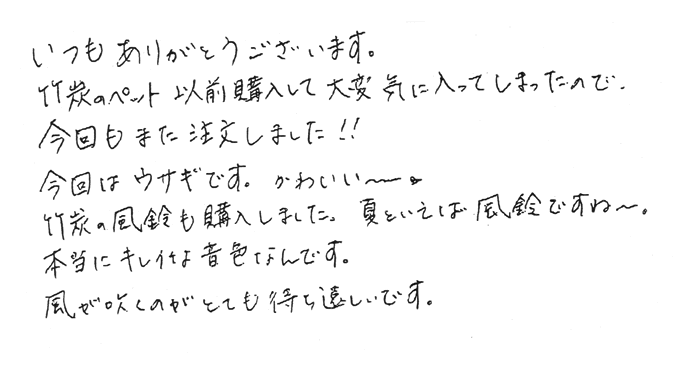 いつもありがとうございます。
竹炭のペット 以前購入して大変気に入ってしまったので、
今回もまた注文しました!!
今回はウサギです。かわいい〜。
竹炭の風鈴も購入しました。夏といえば風鈴ですね〜。
本当にキレイな音色なんです。
風が吹くのがとても待ち遠しいです。